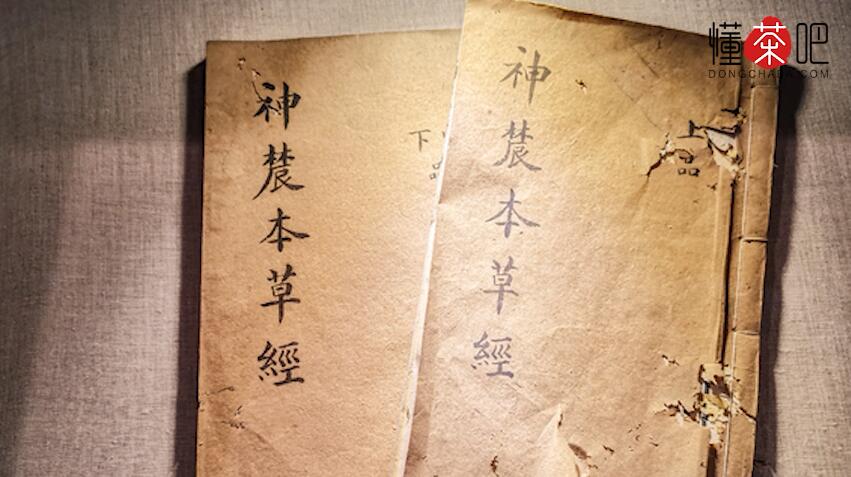 懂茶吧
DONGCHABA.COM
上品
神農本草經
下品
神農本草經